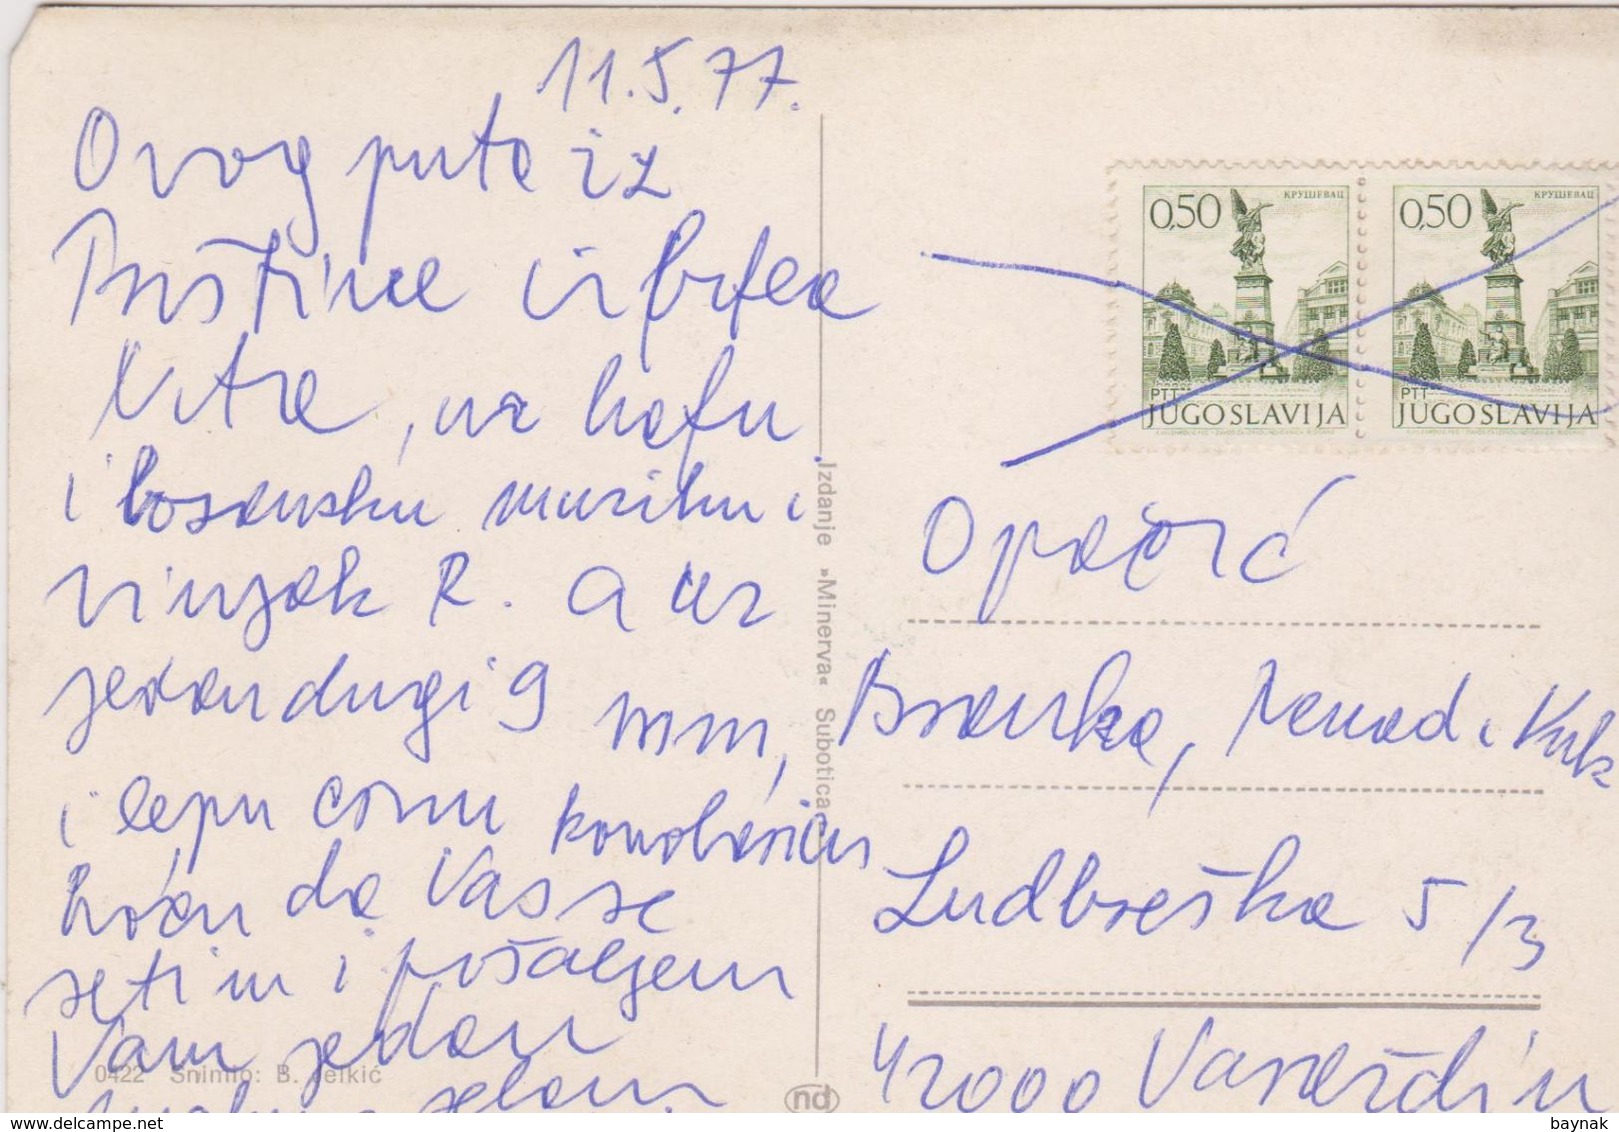 11.5.77.
Ovog puta iz
Prištine iz kafea
, uz kafu
i bosansku muziku i
vinjak R. a uz
jedan dugi 9 mm,
i lepu crnu konobaricu
hoću da Vas se
setim i pošaljem
Vam jedan
0422 Snimio: B. Jelkić
Izdanje »Minerva« Subotica
nd
0,50 КРУШЕВАЦ
PTT
JUGOSLAVIJA
0,50 КРУШЕВАЦ
PTT
JUGOSLAVIJA
Opačić
Branka, Nenad i Vuk
Ludbreška 5/3
42000 Varaždin
delcampe.net
baynak